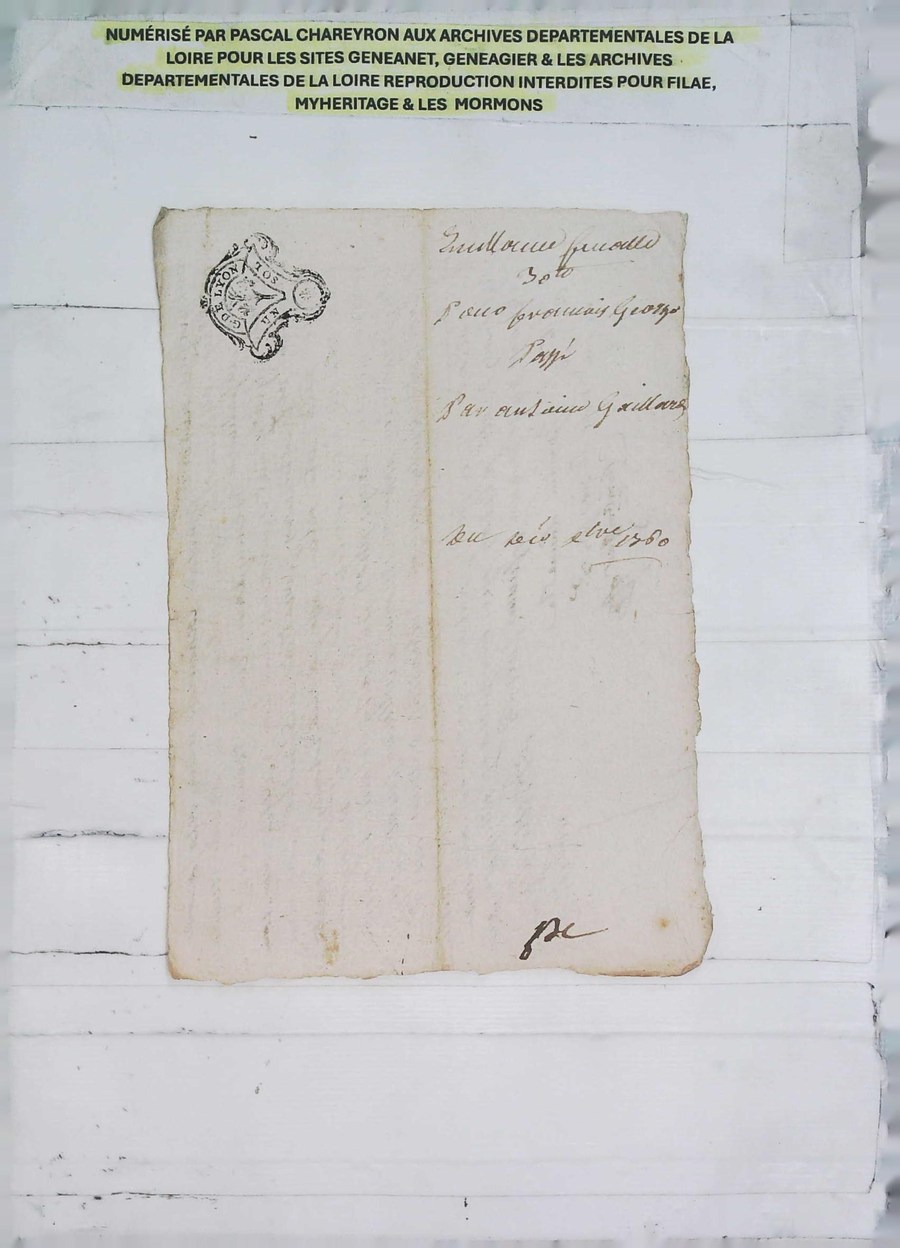 NUMÉRISÉ PAR PASCAL CHAREYRON AUX ARCHIVES DEPARTEMENTALES DE LA
LOIRE POUR LES SITES GENEANET, GENEAGIER & LES ARCHIVES
DEPARTEMENTALES DE LA LOIRE REPRODUCTION INTERDITES POUR FILAE,
MYHERITAGE & LES MORMONS
G DE LYON
SOL
Guillaume
30
Pour francois George
Passé
Par antoine Gaillard
Du 1760